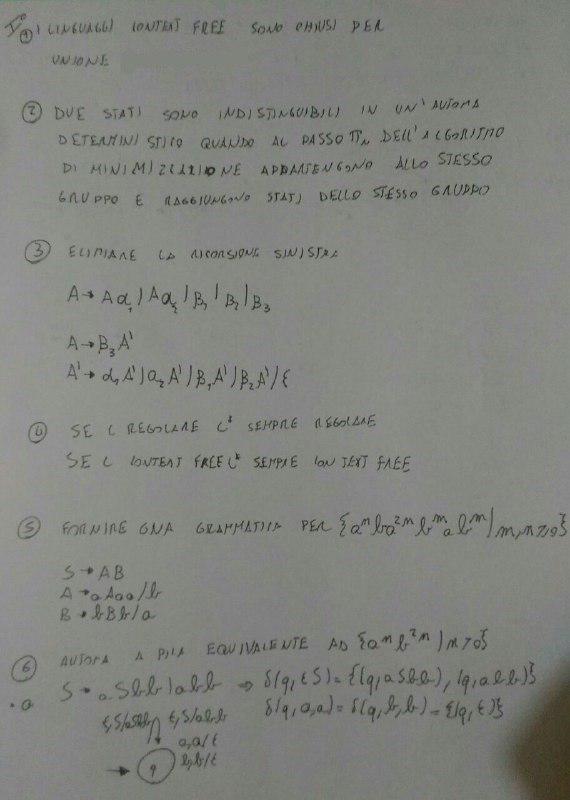 I° ① I LINGUAGGI CONTEXT FREE SONO CHIUSI PER
UNIONE
② DUE STATI SONO INDISTINGUIBILI IN UN'AUTOMA
DETERMINISTICO QUANDO AL PASSO Πn DELL'ALGORITMO
DI MINIMIZZAZIONE APPARTENGONO ALLO STESSO
GRUPPO E RAGGIUNGONO STATI DELLO STESSO GRUPPO
③ ELIMIARE LA RICORSIONE SINISTRA
A → Aα₁ | Aα₂ | β₁ | β₂ | β₃
A → β₃A'
A' → α₁A' | α₂A' | β₁A' | β₂A' / ε
④ SE L REGOLARE L* SEMPRE REGOLARE
SE L CONTEXT FREE L* SEMPRE CONTEXT FREE
⑤ FORNIRE UNA GRAMMATICA PER {aⁿba²ⁿbᵐabᵐ | m,n≥0}
S → AB
A → aAaa/b
B → bBb/a
⑥ AUTOMA A PILA EQUIVALENTE AD {aⁿb²ⁿ | n>0}
• a S → aSbb | abb ⇒ δ(q,εS) = {(q,aSbb), (q,abb)}
δ(q,a,a) = δ(q,b,b) = {(q,ε)}
ε,S/aSbb ε,S/abb
a,a/ε
b,b/ε
→ q